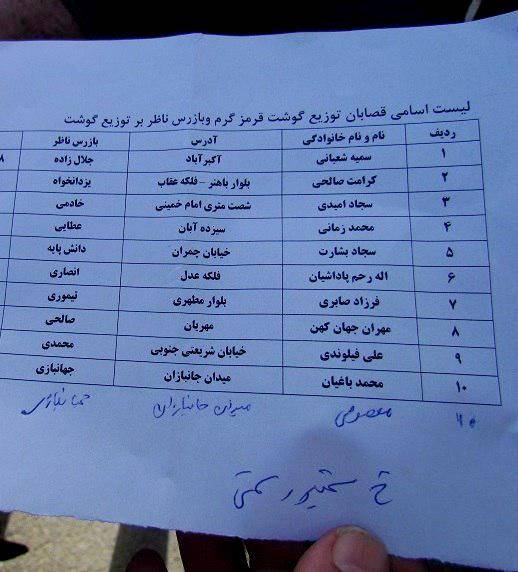 لیست اسامی قصابان توزیع گوشت قرمز گرم وبازرس ناظر بر توزیع گوشت
ردیف نام و نام خانوادگی آدرس بازرس ناظر
۱ سمیه شعبانی آکبرآباد جلال زاده
۲ کرامت صالحی بلوار باهنر – فلکه عقاب یزدانخواه
۳ سجاد امیدی شصت متری امام خمینی خادمی
۴ محمد زمانی سیزده آبان عطایی
۵ سجاد بشارت خیابان چمران دانش پایه
۶ اله رحم پاداشیان فلکه عدل انصاری
۷ فرزاد صابری بلوار مطهری تیموری
۸ مهران جهان کهن مهریان صالحی
۹ علی فیلوندی خیابان شریعتی جنوبی محمدی
۱۰ محمد باغیان میدان جانبازان جهانبازی
معصومی میدان جانبازان